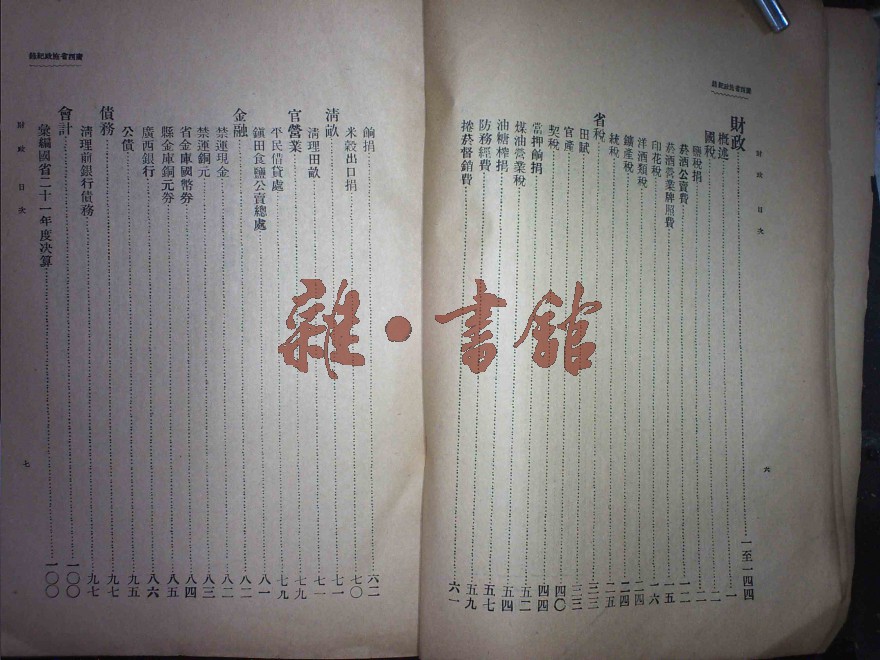 廣西省施政紀錄
財政目次
財政⋯⋯一至一四四
概述⋯⋯一
國稅⋯⋯二
鹽稅捐⋯⋯二
菸酒公賣費⋯⋯一二
菸酒營業牌照費⋯⋯一五
印花稅⋯⋯一六
洋酒類稅⋯⋯二四
鑛產稅⋯⋯二四
統稅⋯⋯二五
省稅⋯⋯三三
田賦⋯⋯三三
官產⋯⋯四〇
契稅⋯⋯四四
當押餉捐⋯⋯五二
煤油營業稅⋯⋯五四
油糖榨捐⋯⋯五七
防務經費⋯⋯五九
捲菸督銷費⋯⋯六一
六
餉捐⋯⋯六二
米穀出口捐⋯⋯七〇
清畝⋯⋯七一
清理田畝⋯⋯七一
官營業⋯⋯七九
平民借貸處⋯⋯七九
鎭田食鹽公賣總處⋯⋯八一
金融⋯⋯八二
禁運現金⋯⋯八二
禁運銅元⋯⋯八三
省金庫國幣券⋯⋯八四
縣金庫銅元券⋯⋯八五
廣西銀行⋯⋯八六
公債⋯⋯九五
債務⋯⋯九七
清理前銀行債務⋯⋯九七
會計⋯⋯一〇〇
彙編國省二十一年度決算⋯⋯一〇〇
廣西省施政紀錄
財政目次
七
雜·書館